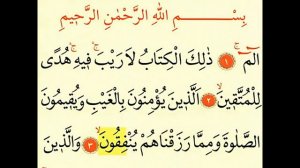 بِسْمِ اللهِ الرَّحْمٰنِ الرَّحِيمِ
الٓمٓ ۚ ﴿١﴾ ذٰلِكَ الْكِتَابُ لَا رَيْبَ ۚ فِيهِ ۚ هُدًى
لِلْمُتَّقِينَ ۙ ﴿٢﴾ اَلَّذِينَ يُؤْمِنُونَ بِالْغَيْبِ وَيُقِيمُونَ
الصَّلٰوةَ وَمِمَّا رَزَقْنَاهُمْ يُنْفِقُونَ ۙ ﴿٣﴾ وَالَّذِينَ